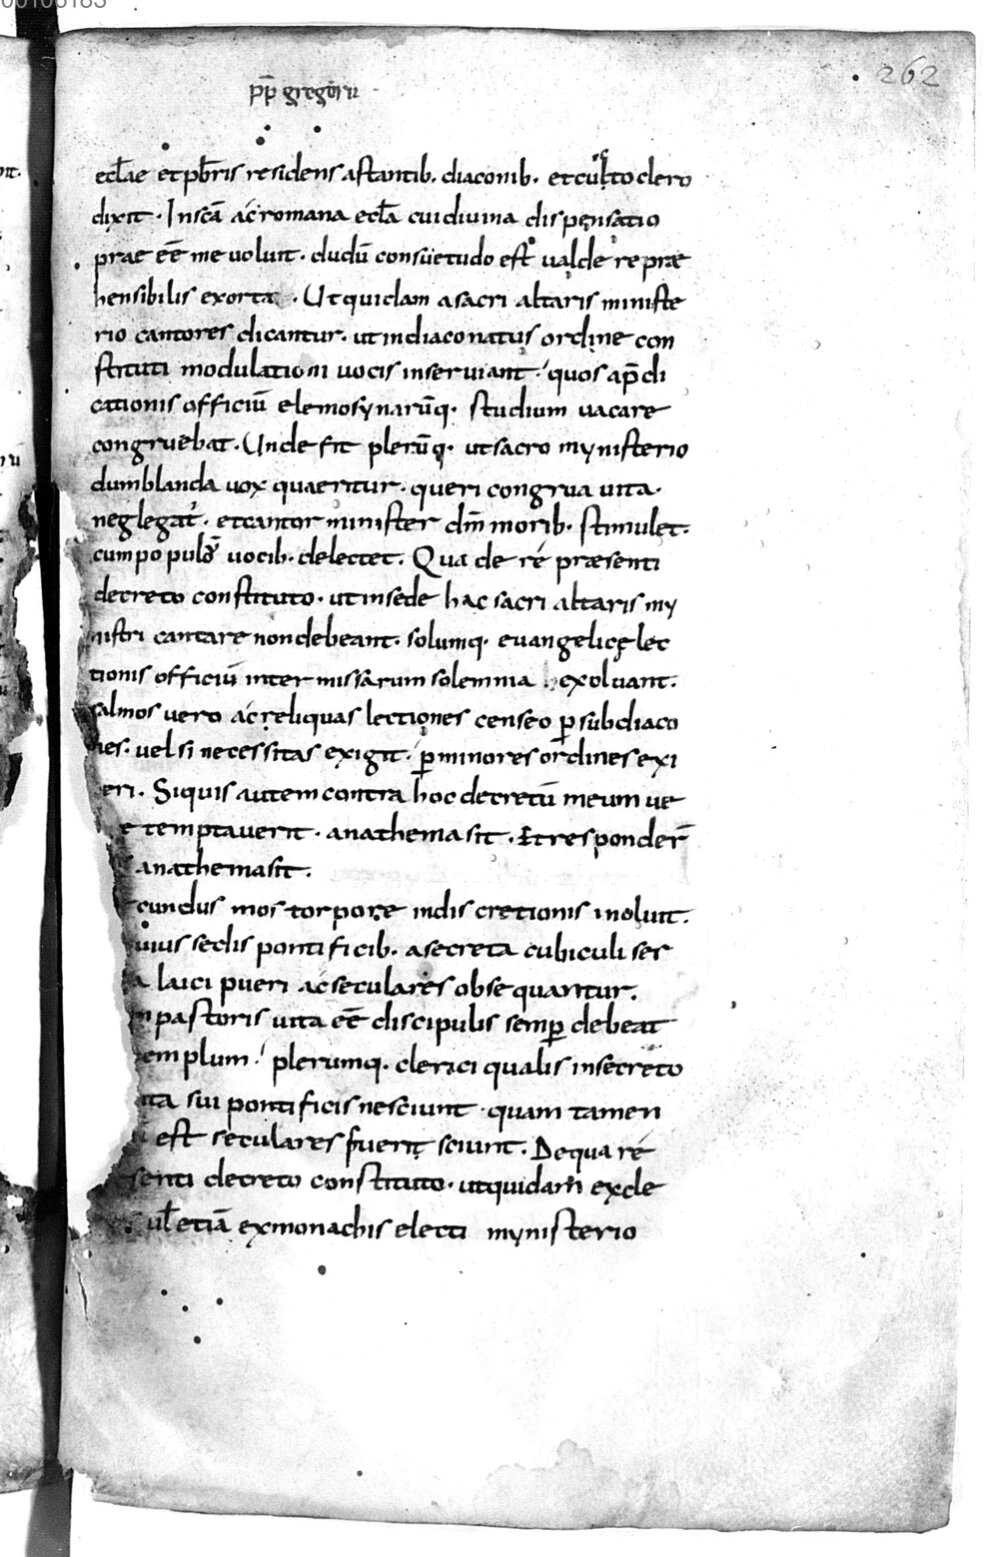 00106183
262
pp̄ gregorii
eccƚae et pb̄ris residens astantib. diaconib. et cuncto clero
dixit. In sc̄a ac romana eccƚa cui diuina dispensatio
prae eē me uoluit. dudū consuetudo est ualde re præ
hensibilis exorta. Ut quidam a sacri altaris ministe
rio cantores dicantur. ut in diaconatus ordine con
stituti modulationi uocis inseruiant. quos ap̄di
cationis officiū elemosynarūq. studium uacare
congruebat. Unde fit plerūq. ut sacro mynisterio
dum blanda uox quaeritur. queri congrua uita.
neglegat̄. et cantor minister dm̄ morib. stimulet.
cum populū uocib. delectet. Qua de re præsenti
decreto constituto. ut in sede hac sacri altaris my
nistri cantare non debeant. solumq. euangelicę lec
tionis officiū inter missarum solemnia exoluant.
salmos uero ac reliquas lectiones censeo ꝑ subdiaco
nes. uel si necessitas exigit. ꝑ minores ordines exi
eri. Siquis autem contra hoc decretū meum ue
e temptauerit. anathema sit. Et responder̄
anathema sit.
cundus mos torpore indiscretionis inoluit.
uius sedis pontificib. a secreta cubiculi ser
a laici pueri ac seculares obsequantur.
m pastoris uita eē discipulis semꝑ debeat
emplum. plerumq. clerici qualis in secreto
ita sui pontificis nesciunt. quam tamen
est seculares fuerit sciunt. De qua re
senti decreto constituto. ut quidam ex cle
uƚ etiā ex monachis electi mynisterio